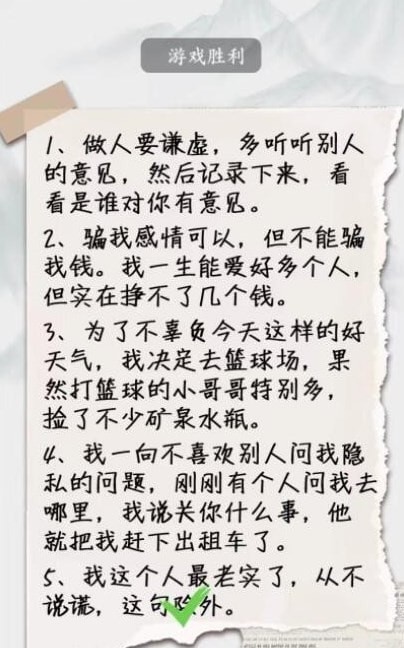 游戏胜利
1、做人要谦虚，多听听别人
的意见，然后记录下来，看
看是谁对你有意见。
2、骗我感情可以，但不能骗
我钱。我一生能爱好多个人，
但实在挣不了几个钱。
3、为了不辜负今天这样的好
天气，我决定去篮球场，果
然打篮球的小哥哥特别多，
捡了不少矿泉水瓶。
4、我一向不喜欢别人问我隐
私的问题，刚刚有个人问我去
哪里，我说关你什么事，他
就把我赶下出租车了。
5、我这个人最老实了，从不
说谎，这句除外。